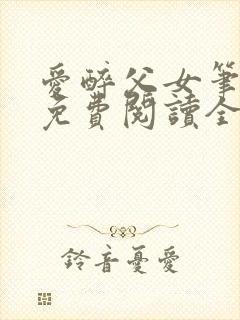 愛醉父女筆
免費閱讀全
鈴音憂愛